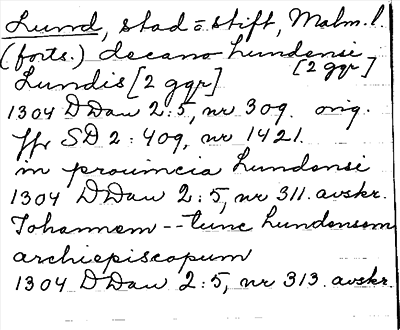 Lund, stad o stift, Malm. l.
(forts.) decano Lundensi
[2 ggr]
Lundis [2 ggr]
1304 DDan 2:5, nr 309. orig.
jfr SD 2:409, nr 1421.
in prouincia Lundensi
1304 DDan 2:5, nr 311. avskr.
Johannem -- tunc Lundensem
archiepiscopum
1304 DDan 2:5, nr 313. avskr.